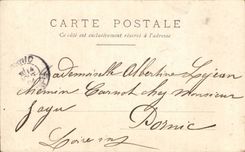 CARTE POSTALE
Ce côté est exclusivement réservé à l'adresse
Mademoiselle Albertine
chemin Carnot chez Monsieur
Pornic
Loire inf